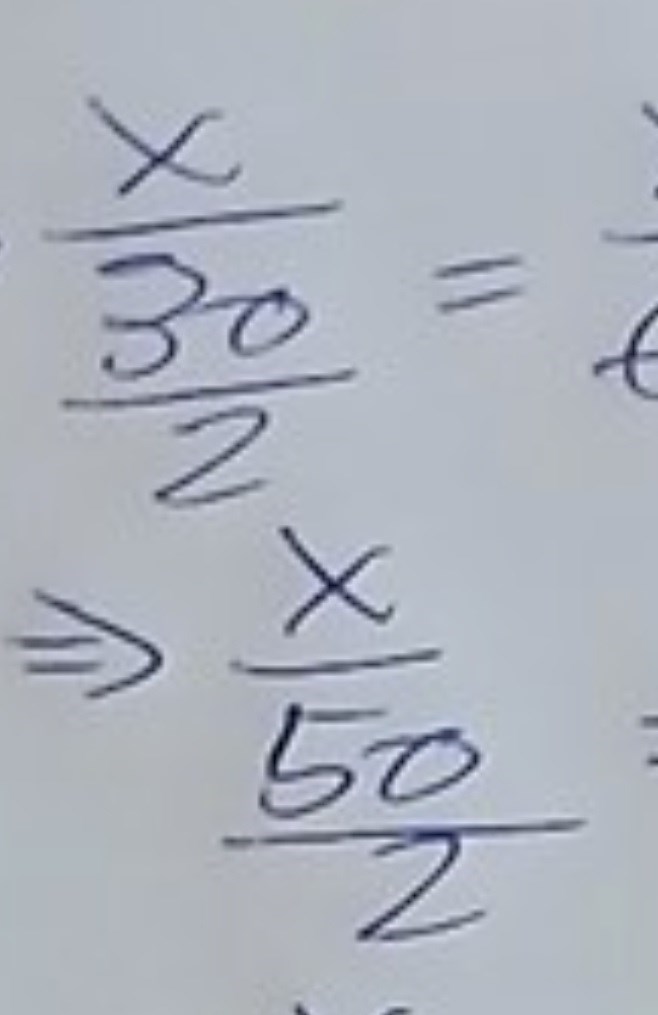 x
30 =
2
⇒ x
50
2